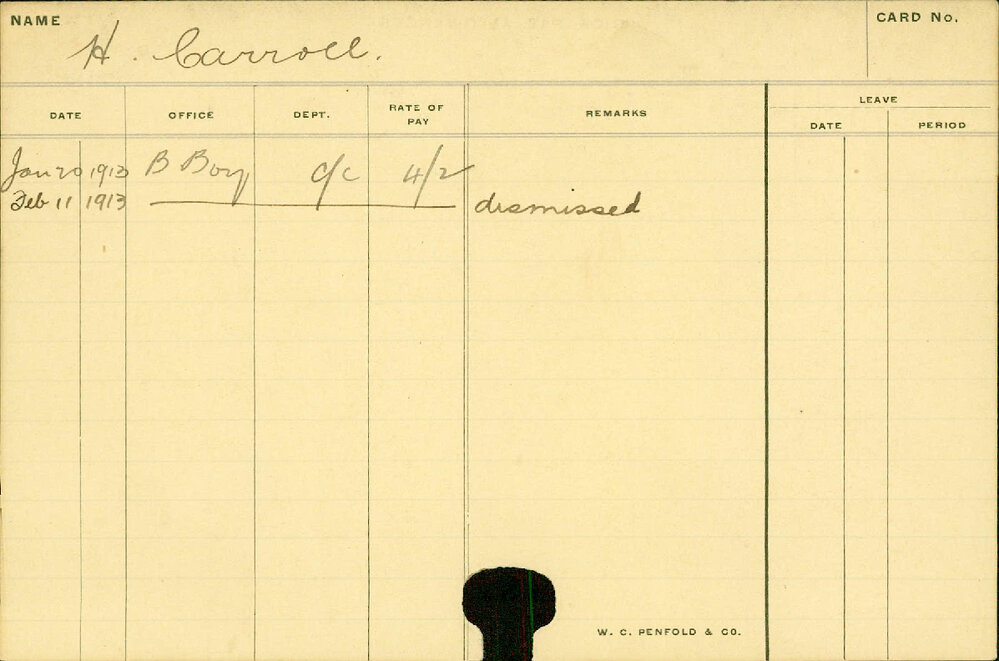 NAME
H. Carroll.
CARD No.
DATE OFFICE DEPT. RATE OF PAY REMARKS LEAVE
DATE PERIOD
Jan 20 1913 B Boy c/c 4/2
Feb 11 1913 dismissed
W. C. PENFOLD & CO.